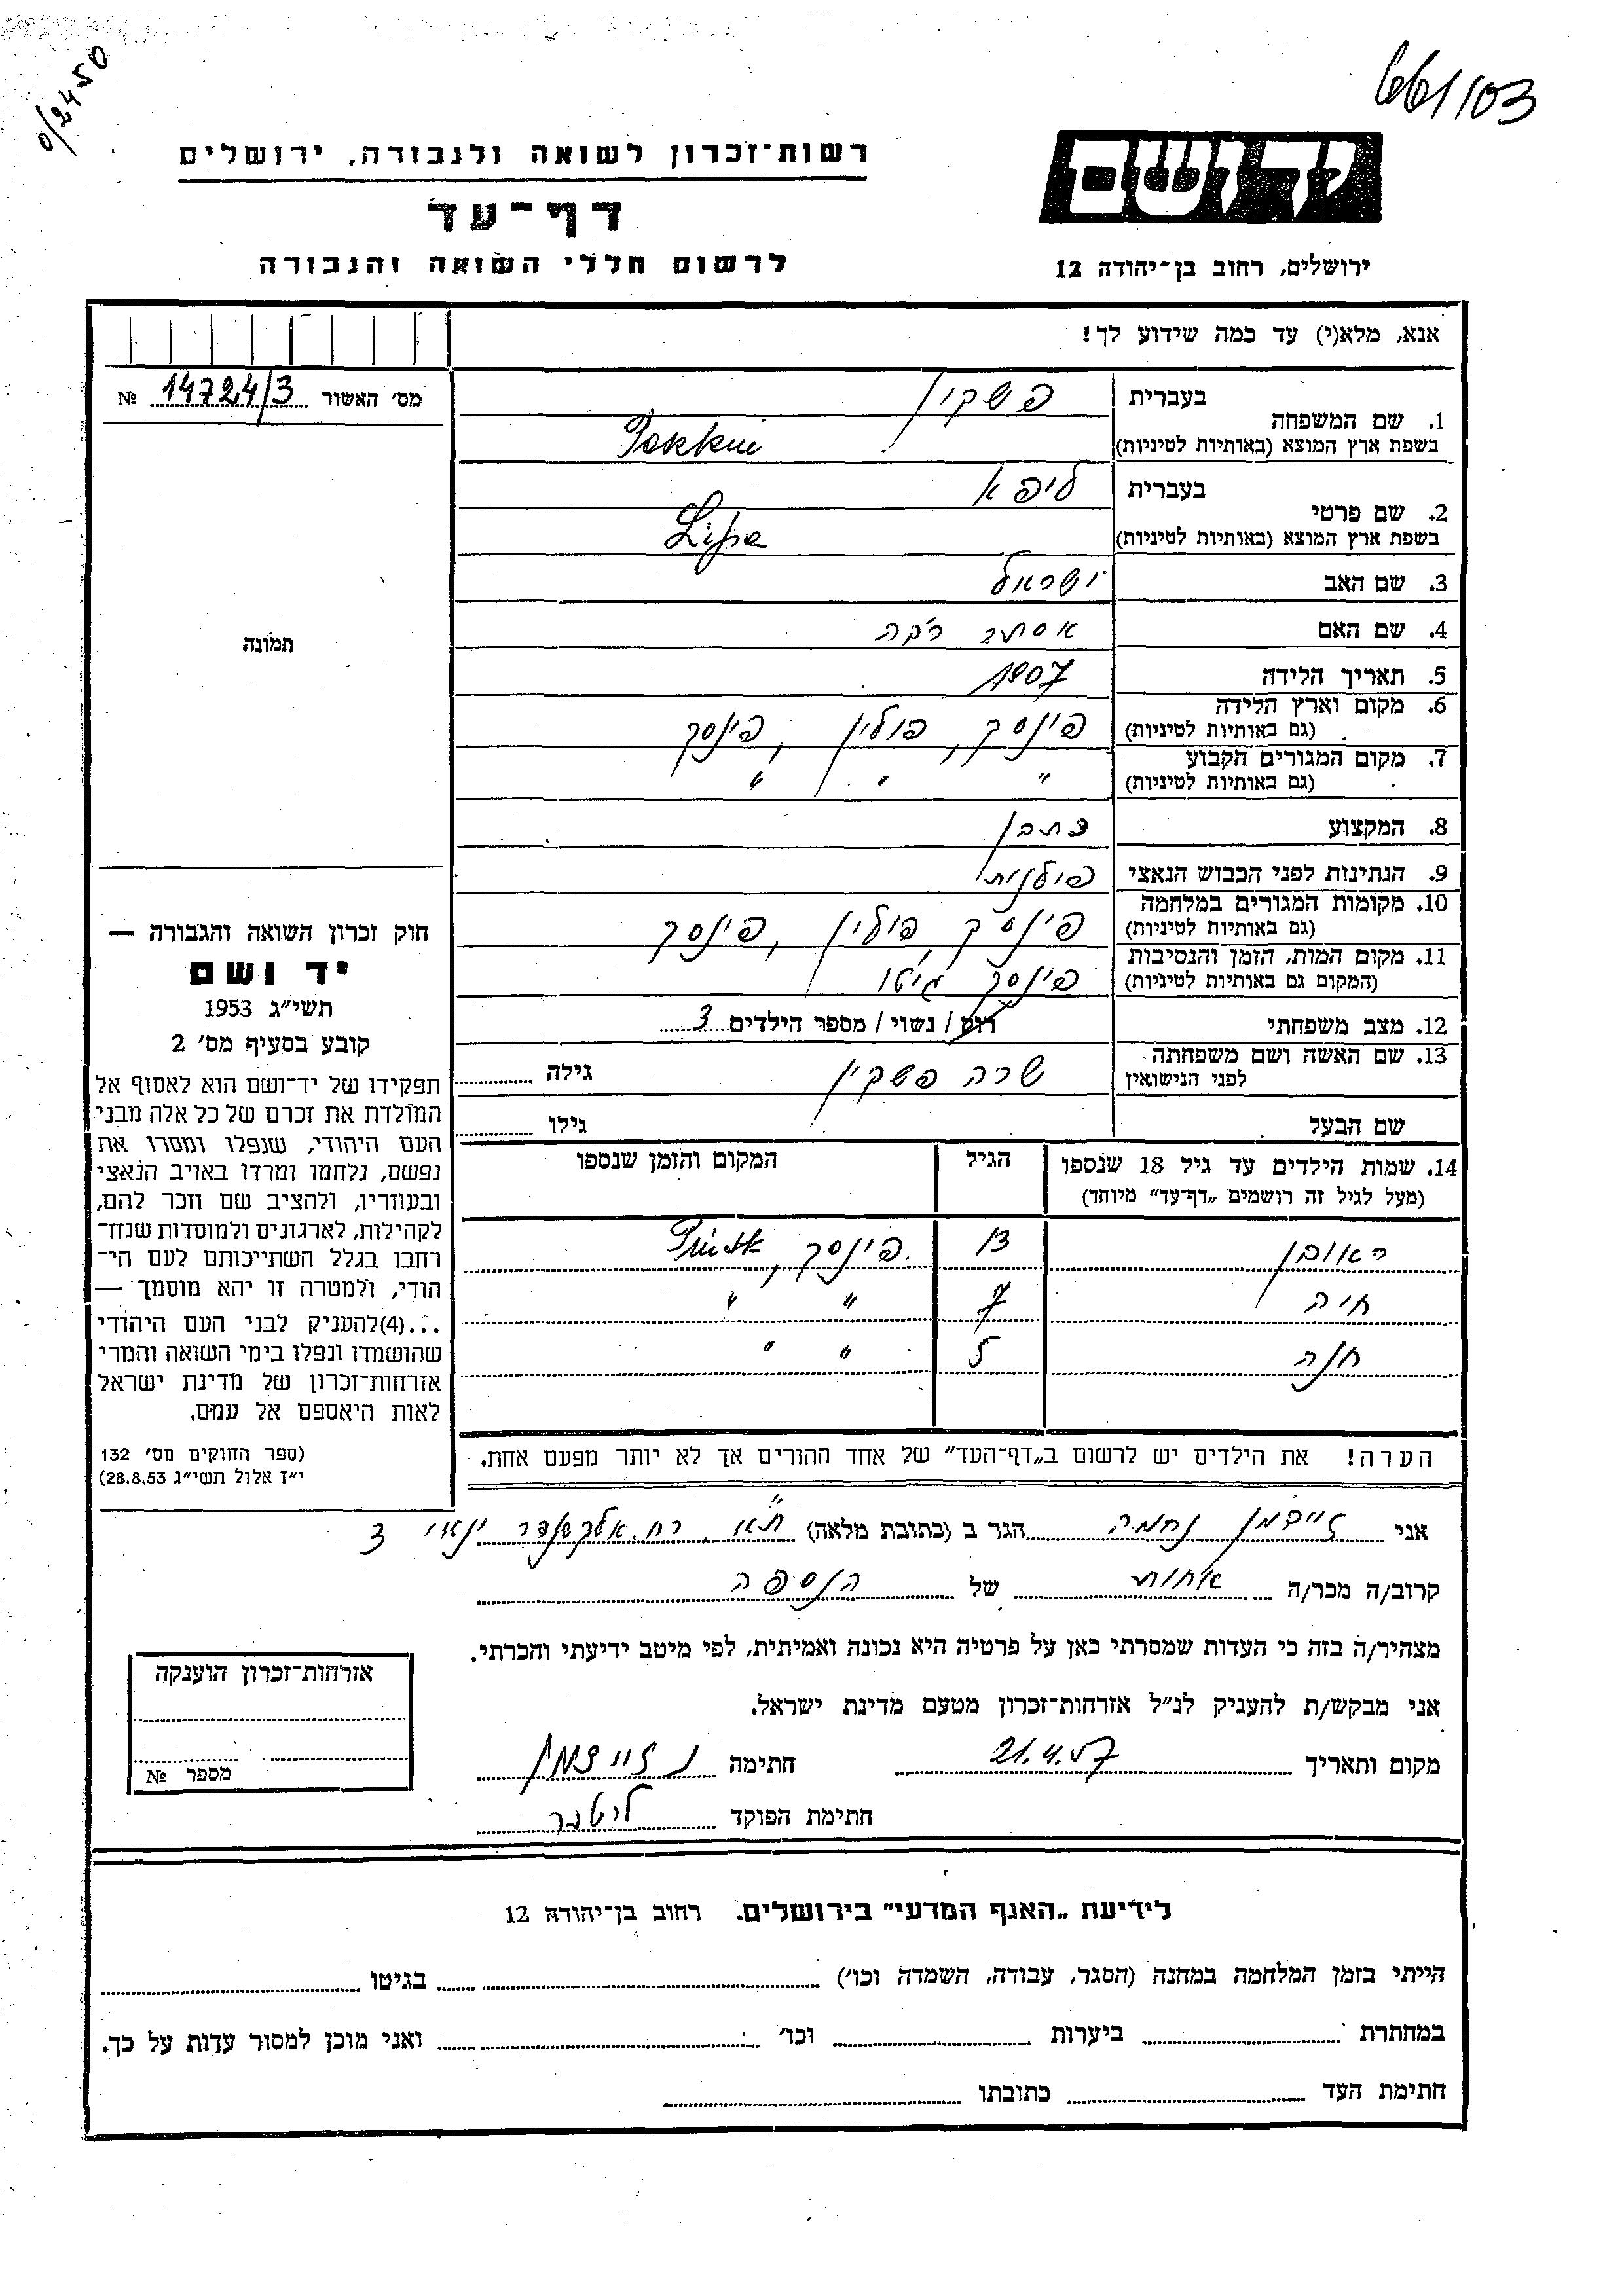 0/2450
661/103
ידושם
רשות־זכרון לשואה ולגבורה, ירושלים
דף־עד
לרשום חללי השואה והגבורה
ירושלים, רחוב בן־יהודה 12
אנא, מלא(י) עד כמה שידוע לך!
מס׳ האשור 14724/3 №
תמונה
1. שם המשפחה בעברית פשקין
בשפת ארץ המוצא (באותיות לטיניות)
2. שם פרטי בעברית ליפא
בשפת ארץ המוצא (באותיות לטיניות) Lipa
3. שם האב ישראל
4. שם האם אסתר
5. תאריך הלידה 1907
6. מקום וארץ הלידה (גם באותיות לטיניות) פינסק, פולין, פינסק
7. מקום המגורים הקבוע (גם באותיות לטיניות) " " "
8. המקצוע
9. הנתינות לפני הכבוש הנאצי פולנית
10. מקומות המגורים במלחמה (גם באותיות לטיניות) פינסק, פולין, פינסק
11. מקום המות, הזמן והנסיבות (המקום גם באותיות לטיניות) פינסק גיטו
12. מצב משפחתי רוק / נשוי / מספר הילדים 3
13. שם האשה ושם משפחתה לפני הנישואין שרה פשקין גילה
שם הבעל גילו
14. שמות הילדים עד גיל 18 שנספו (מעל לגיל זה רושמים „דף־עד" מיוחד) הגיל המקום והזמן שנספו
ראובן 13 פינסק, Pinsk
חיה 7 " "
חנה 5 " "
הערה! את הילדים יש לרשום ב„דף־העד" של אחד ההורים אך לא יותר מפעם אחת.
חוק זכרון השואה והגבורה —
יד ושם
תשי״ג 1953
קובע בסעיף מס׳ 2
תפקידו של יד־ושם הוא לאסוף אל
המולדת את זכרם של כל אלה מבני
העם היהודי, שנפלו ומסרו את
נפשם, נלחמו ומרדו באויב הנאצי
ובעוזריו, ולהציב שם וזכר להם,
לקהילות, לארגונים ולמוסדות שנח־
רחבו בגלל השתייכותם לעם הי־
הודי, ולמטרה זו יהא מוסמך —
...(4)להעניק לבני העם היהודי
שהושמדו ונפלו בימי השואה והמרי
אזרחות־זכרון של מדינת ישראל
לאות היאספם אל עמם.
(ספר החוקים מס׳ 132
י״ז אלול תשי״ג 28.8.53)
אני זיידמן נחמה הגר ב (כתובת מלאה) ת״א, רח. אלכסנדר ינאי 3
קרוב/ה מכר/ה אחות של הנספה
מצהיר/ה בזה כי העדות שמסרתי כאן על פרטיה היא נכונה ואמיתית, לפי מיטב ידיעתי והכרתי.
אני מבקש/ת להעניק לנ״ל אזרחות־זכרון מטעם מדינת ישראל.
מקום ותאריך 21.4.57 חתימה נ זיידמן
חתימת הפוקד
אזרחות־זכרון הוענקה
מספר №
לידיעת „האגף המדעי" בירושלים. רחוב בן־יהודה 12
הייתי בזמן המלחמה במחנה (הסגר, עבודה, השמדה וכו׳) בגיטו
במחתרת ביערות וכו׳ ואני מוכן למסור עדות על כך.
חתימת העד כתובתו